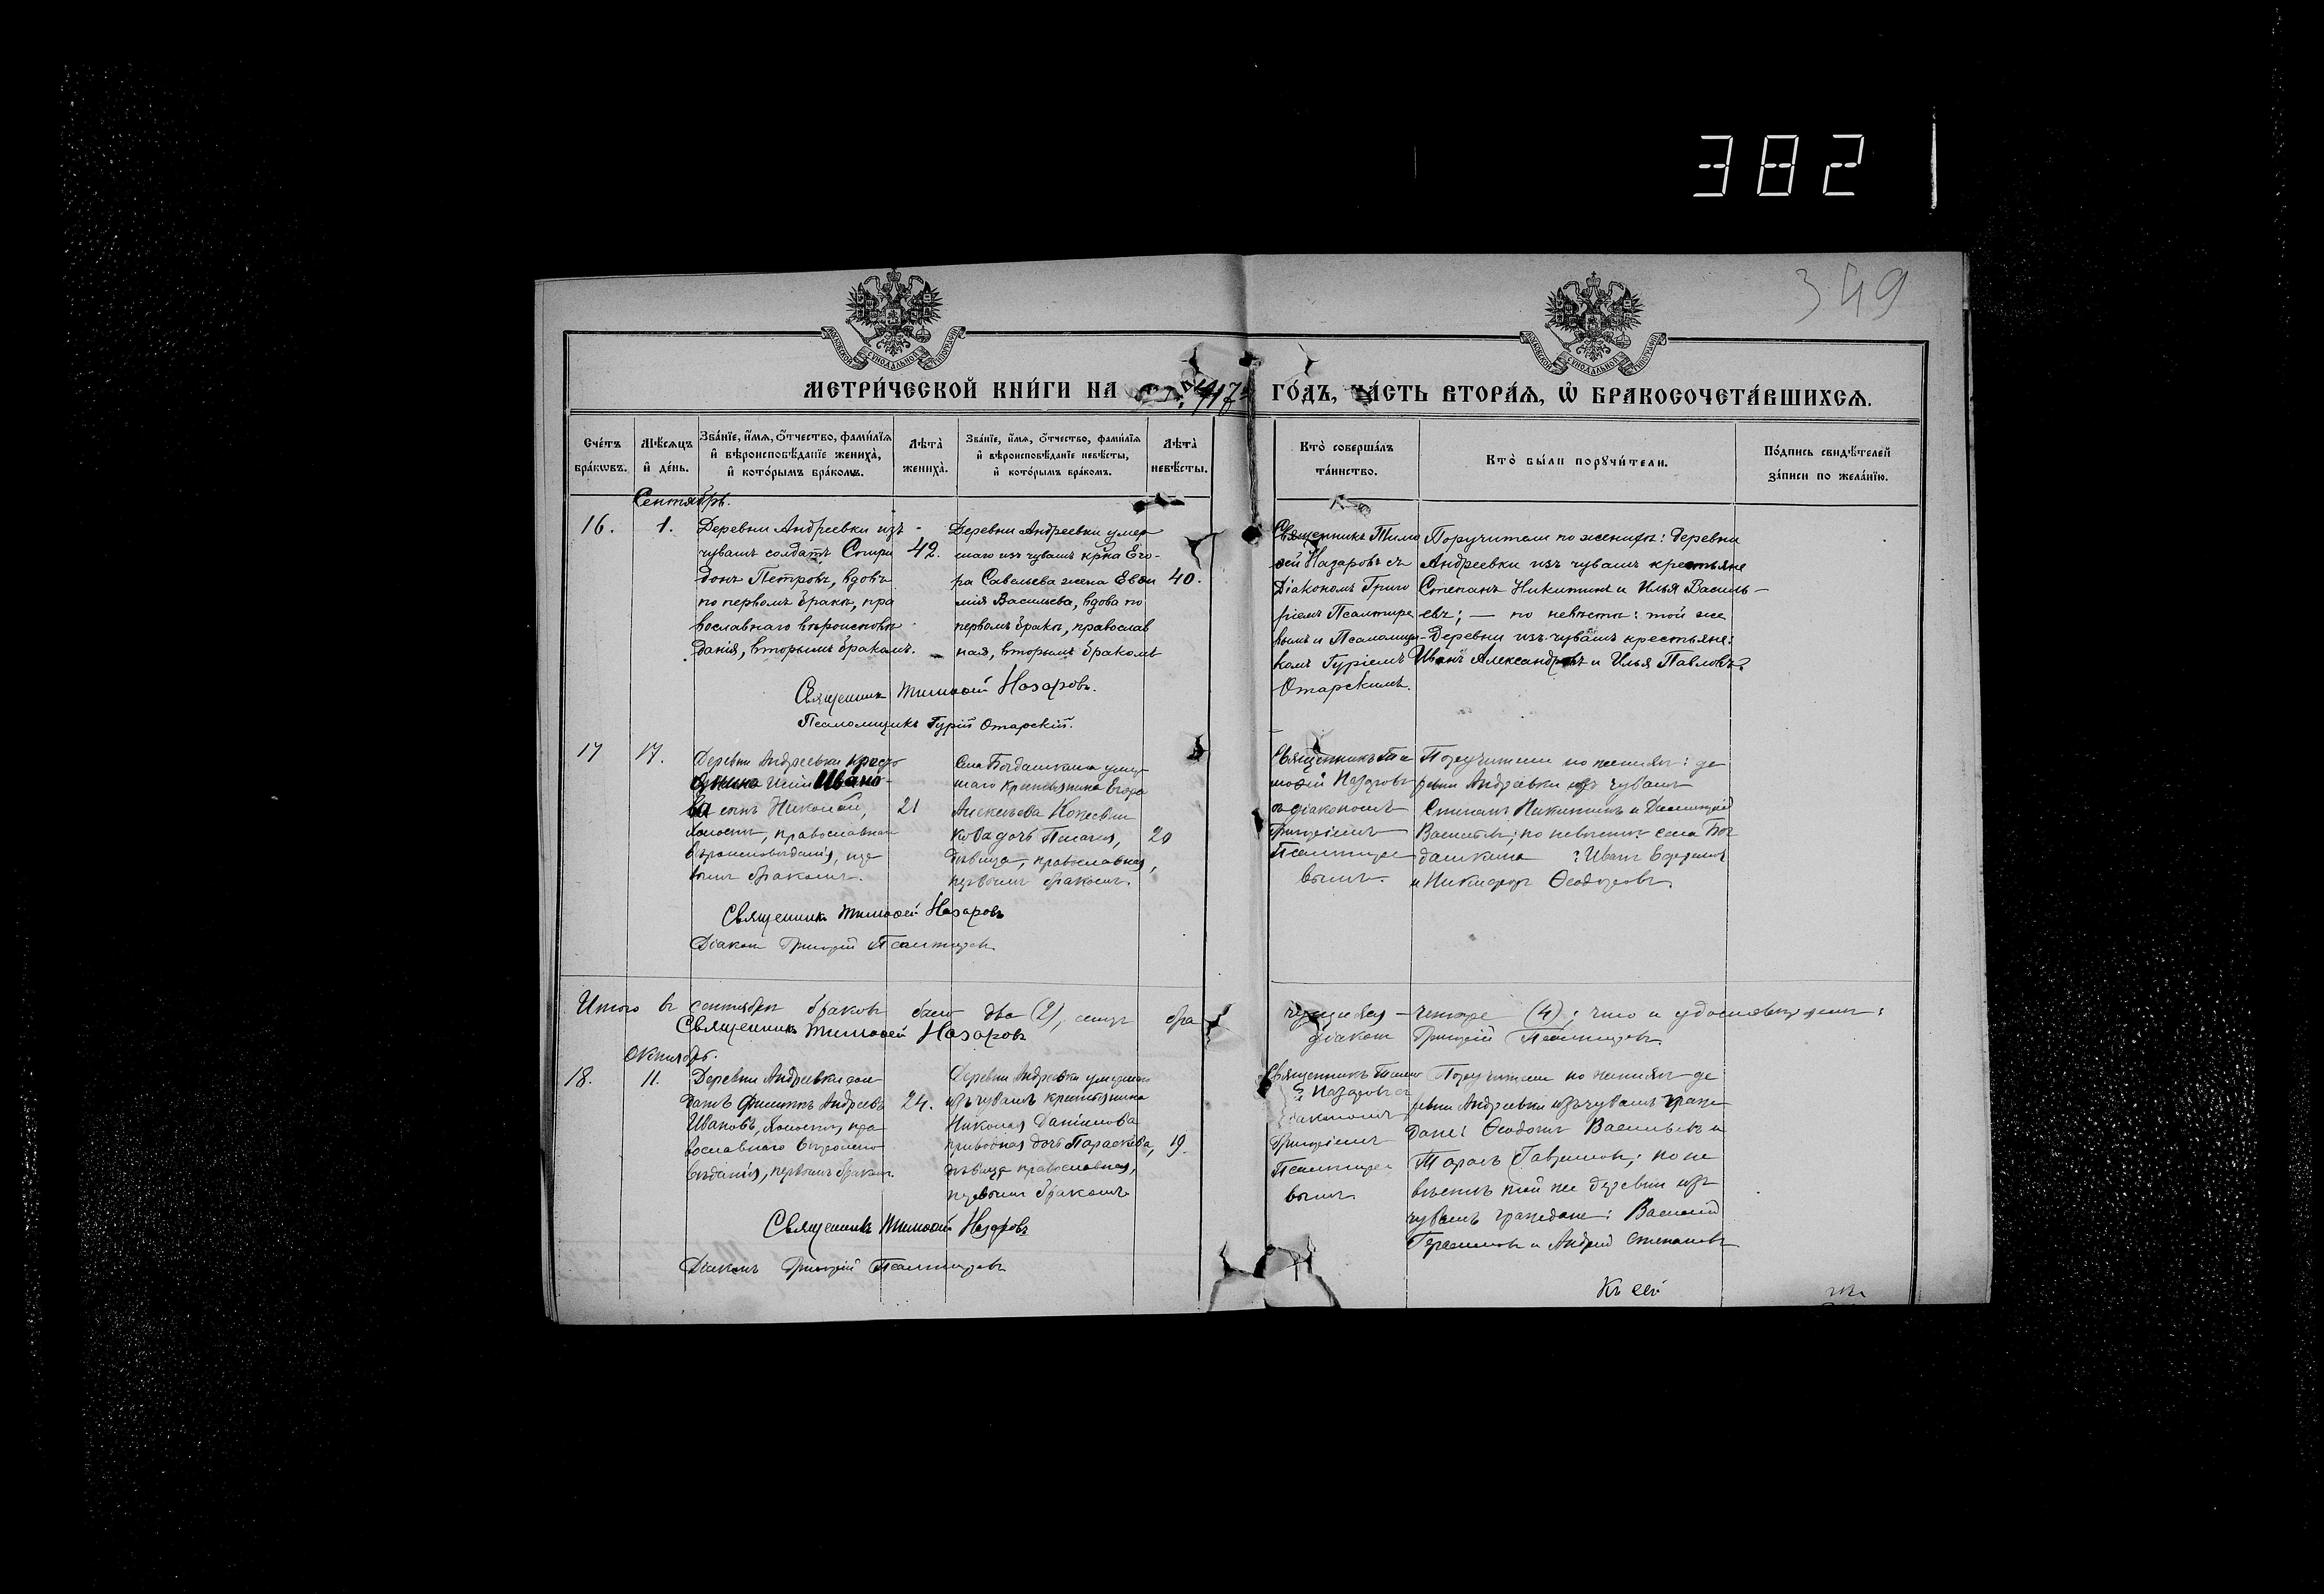 3821
349
МОСКОВСКОЙ СѴНОДАЛЬНОЙ ТИПОГРАФІИ
МОСКОВСКОЙ СѴНОДАЛЬНОЙ ТИПОГРАФІИ
МЕТРИ́ЧЕСКОЙ КНИ́ГИ НА 1917 ГО́ДЪ, ЧА́СТЬ ВТОРА́Ѧ, Ѡ҆ БРАКОСОЧЕТА́ВШИХСѦ.
Сче́тъ бра́кѡвъ.
Мѣ́сяцъ и҆ де́нь.
Зва́нїе, и҆́мѧ, ѻ҆́тчество, фами́лїѧ и҆ вѣроисповѣ́данїе жениха̀, и҆ кото́рымъ бра́комъ.
Лѣта̀ жениха̀.
Зва́нїе, и҆́мѧ, ѻ҆́тчество, фами́лїѧ и҆ вѣроисповѣ́данїе невѣ́сты, и҆ кото́рымъ бра́комъ.
Лѣта̀ невѣ́сты.
Кто̀ соверша́лъ та́инство.
Кто̀ бы́ли порꙋчи́тели.
По́дпись свидѣ́телей за́писи по жела́нїю.
Сентябрь.
16.
1.
Деревни Андреевки изъ
чувашъ солдатъ Спири
донъ Петровъ, вдовъ
по первомъ бракѣ, пра
вославнаго вѣроисповѣ
данія, вторымъ бракомъ.
42.
Деревни Андреевки умер
шаго изъ чувашъ кр-на Его-
ра Савельева жена Евѳи
мія Васильева, вдова по
первомъ бракѣ, православ
ная, вторымъ бракомъ
40.
Священникъ Тимо
ѳей Назаровъ съ
Діакономъ Григо
ріемъ Псалтире
вымъ и Псаломщи-
комъ Гуріемъ
Отарскимъ.
Поручители по женихѣ: деревни
Андреевки изъ чувашъ крестьяне
Степанъ Никитинъ и Илья Василь-
евъ; — по невѣстѣ: той же
Деревни изъ чувашъ крестьяне:
Иванъ Александровъ и Илья Павловъ.
Священникъ Тимоѳей Назаровъ.
Псаломщикъ Гурій Отарскій.
17
17.
Деревни Андреевки
Ивано-
ва сынъ Николай,
холостъ, православнаго
вѣроисповѣданія, пер
вымъ бракомъ.
21
Села Богдашкина умер
шаго крестьянина Егора
Алексѣева
кова дочь Пелагея,
дѣвица, православная,
первымъ бракомъ.
20
Священникъ Ти
моѳей Назаровъ
съ діакономъ
Григоріемъ
Псалтире
вымъ.
Поручители по женихѣ: де
ревни Андреевки изъ чувашъ
Степанъ Никитинъ и Димитрій
Васильевъ; по невѣстѣ села Бог
дашкина: Иванъ
и Никифоръ Ѳеодоровъ.
Священникъ Тимоѳей Назаровъ
Діаконъ Григорій Псалтиревъ
Итого въ сентябрѣ браковъ было два (2), сочетавшихся — четыре (4); что и удостовѣряемъ:
Священникъ Тимоѳей Назаровъ
Діаконъ Григорій Псалтиревъ.
Октябрь.
18.
11.
Деревни Андреевки сол
датъ Филиппъ Андреевъ
Ивановъ, холостъ, пра
вославнаго вѣроиспо
вѣданія, первымъ бракомъ.
24.
Деревни Андреевки умершаго
изъ чувашъ крестьянина
Николая Данилова
приводная дочь Параскева,
дѣвица православная,
первымъ бракомъ
19.
Священникъ Тимо
ѳей Назаровъ съ
діакономъ
Григоріемъ
Псалтире
вымъ.
Поручители по женихѣ де
ревни Андреевки изъ чувашъ граж
дане: Ѳеодотъ Васильевъ и
Тарасъ Гавриловъ; по не
вѣстѣ той же деревни изъ
чувашъ граждане: Василій
Герасимовъ и Андрей Степановъ
Священникъ Тимоѳей Назаровъ
Діаконъ Григорій Псалтиревъ
Къ сей